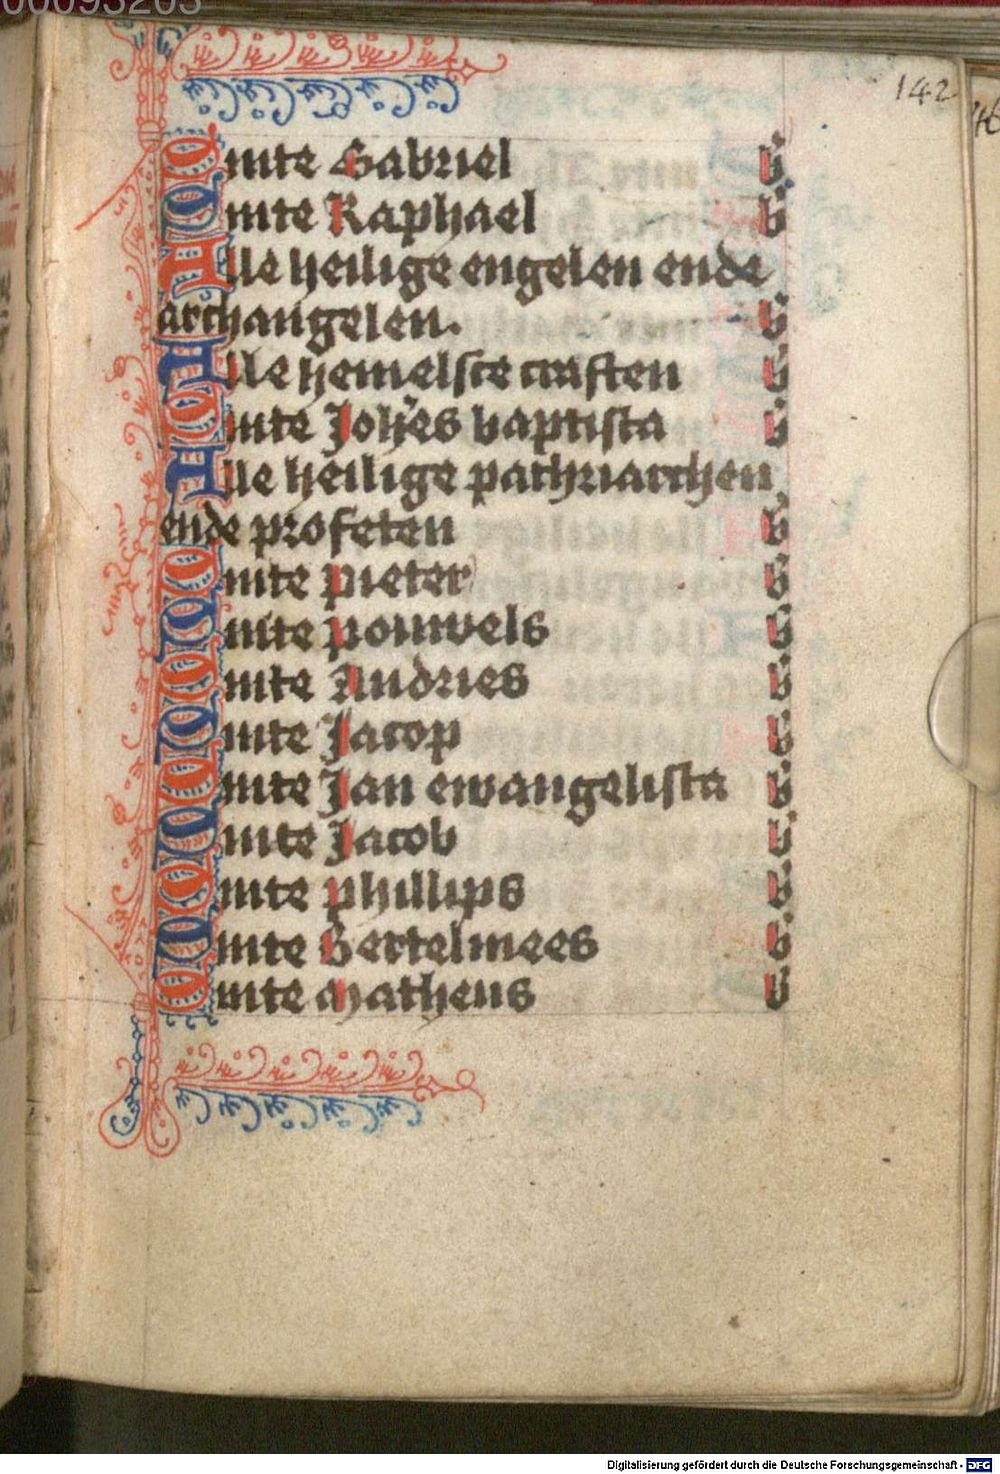 142
Sinte Gabriel b
Sinte Raphael b
Alle heilige engelen ende
archangelen. b
Alle hemelsce craften b
Sinte Joh̄es baptista b
Alle heilige pathriarchen
ende profeten b
Sinte pieter b
Sinte pouwels b
Sinte Andries b
Sinte Jacop b
Sinte Jan ewangelista b
Sinte Jacob b
Sinte phillips b
Sinte Bertelmees b
Sinte matheus b
Digitalisierung gefördert durch die Deutsche Forschungsgemeinschaft - DFG